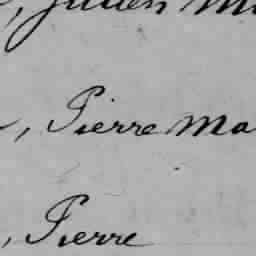 , Julien
, Pierre Ma
, Pierre